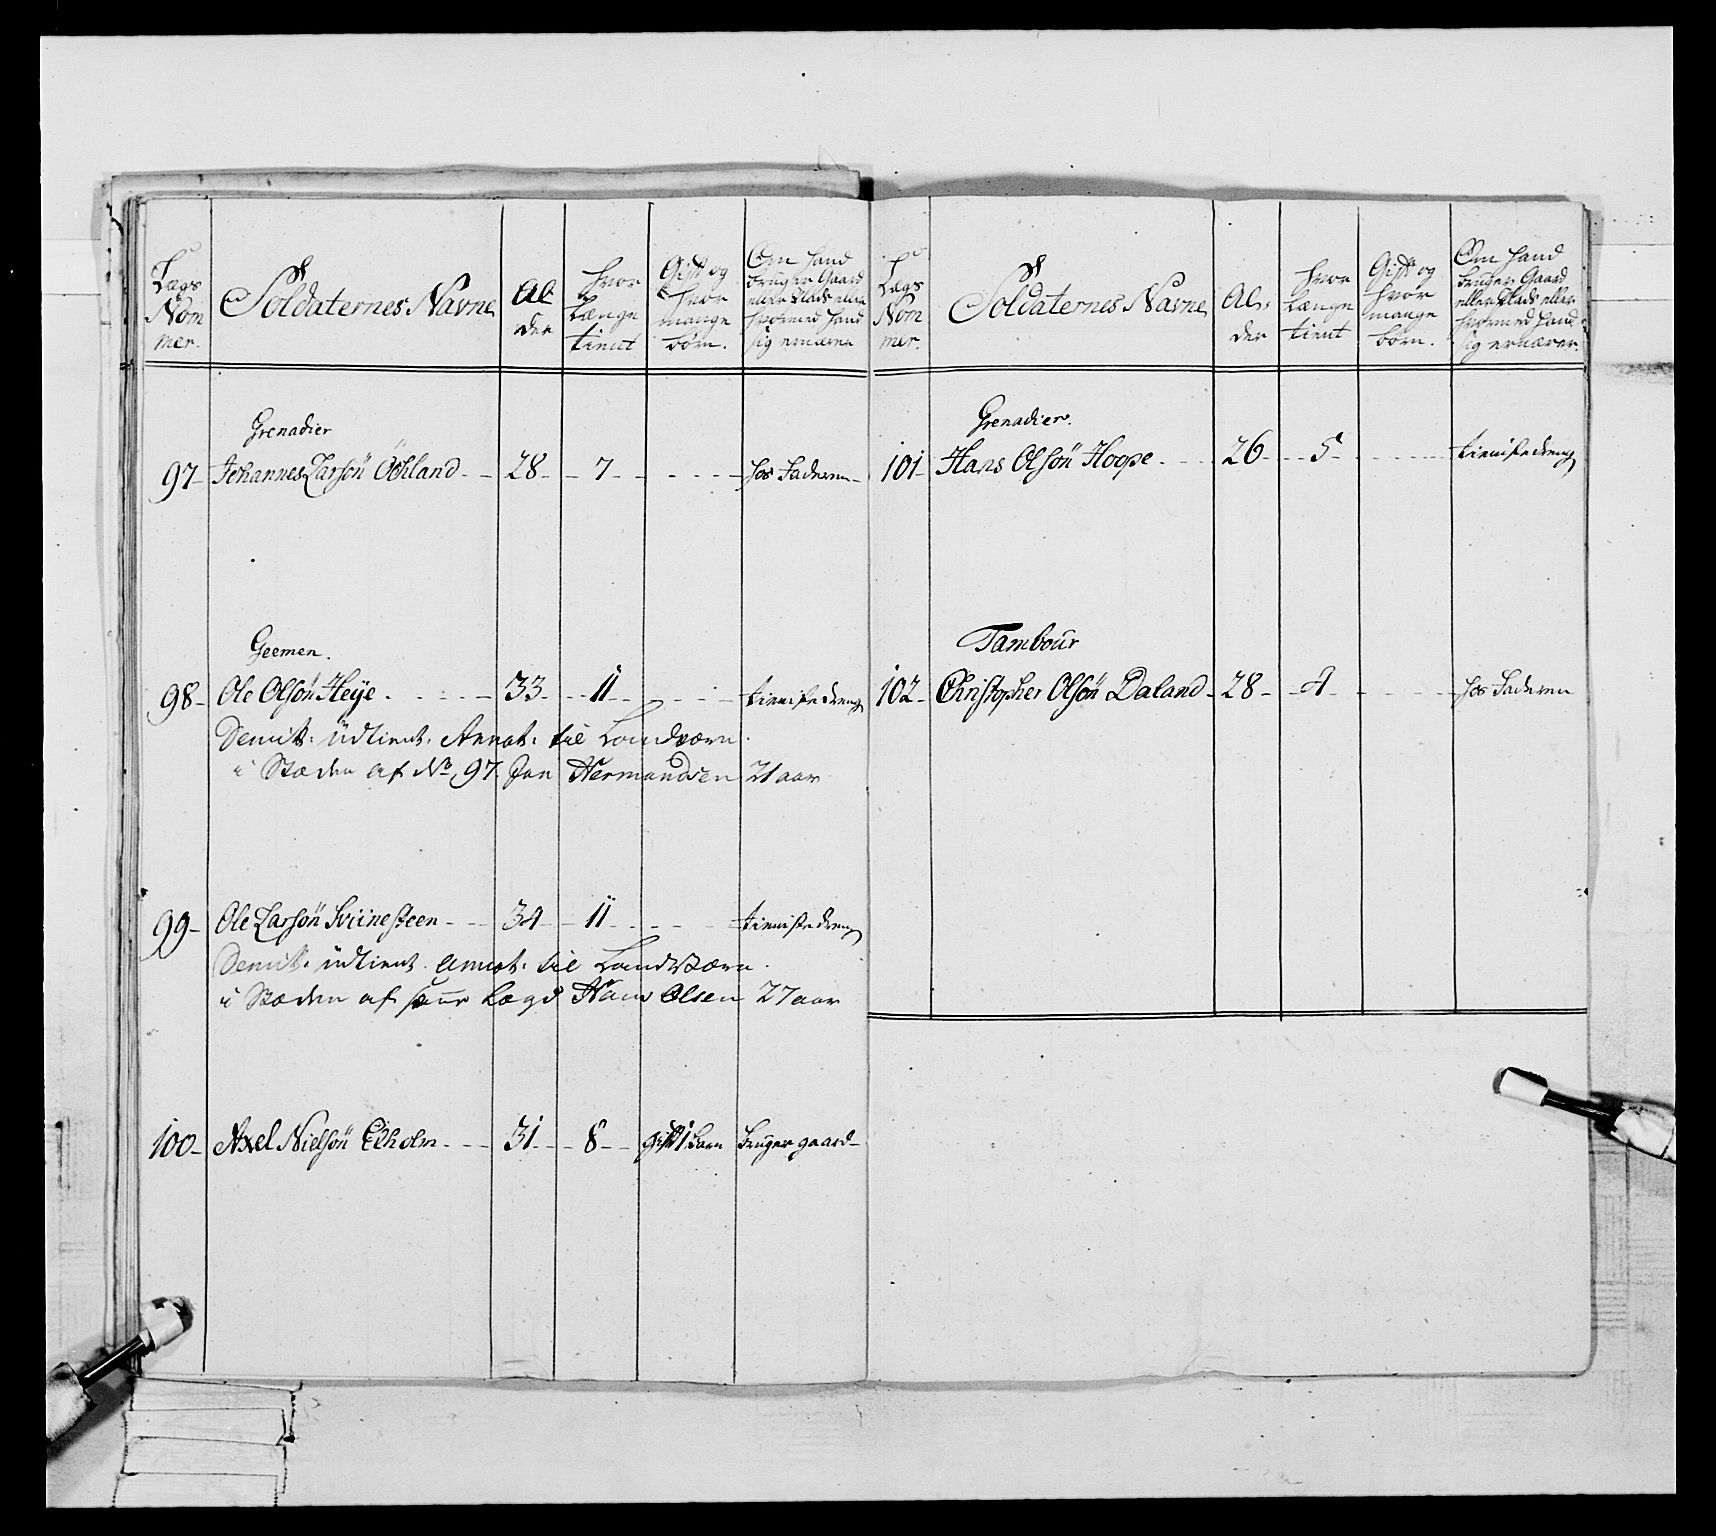 Lægs
Nom
mer.
Soldaternes Navne
Al
der
hvor
Længe
tient
Gift og
hvor
mange
børn.
Om hand
bruger Gaard
eller Plads eller
hvormed hand
sig ernærer
Grenadier
97- Johannes Larsön Öchland - - 28 - - 7 - - - - - hos Faderen -
Geemen.
98- Ole Olsön Heije - - - - - 33 - - 11 - - - - - tienistedreng
Demitt: üdtient. Annot: til Landværn.
i Stæden af No 97 Jan Hermandsen 21 aar
99- Ole Larsön Sviinesteen - - - 34 - - 11 - - - - tienistedreng
Demitt: üdtient. annot: til Landværn.
i Stæden af samme Lægd Hans Olsen 27 aar
100- Axel Nielsön Eeholm - - - 31 - - 8 - - gift 1 barn bruger gaard -
Lægs
Nom
mer.
Soldaternes Navne
Al:
der
hvor
Længe
tient
Gift og
hvor
mange
börn.
Om hand
bruger Gaard
eller Plads eller
hvormed hand
sig ernærer.
Grenadier.
101- Hans Olsön Hoope - - - 26 - - 5 - - - - - tienistedreng
Tambour
102- Christopher Olsön Daland - 28 - - 4 - - - - - hos Faderen